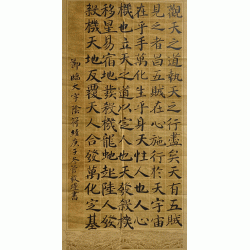 觀天之道執天之行盡矣天有五賊
見之者昌五賊在心施行於天宇宙
在乎手萬化生乎身天性人也人心
機也立天之道以定人也天發殺機
移星易宿地發殺機龍蛇起陸人發
殺機天地反覆天人合發萬化定基
臨大字陰符經